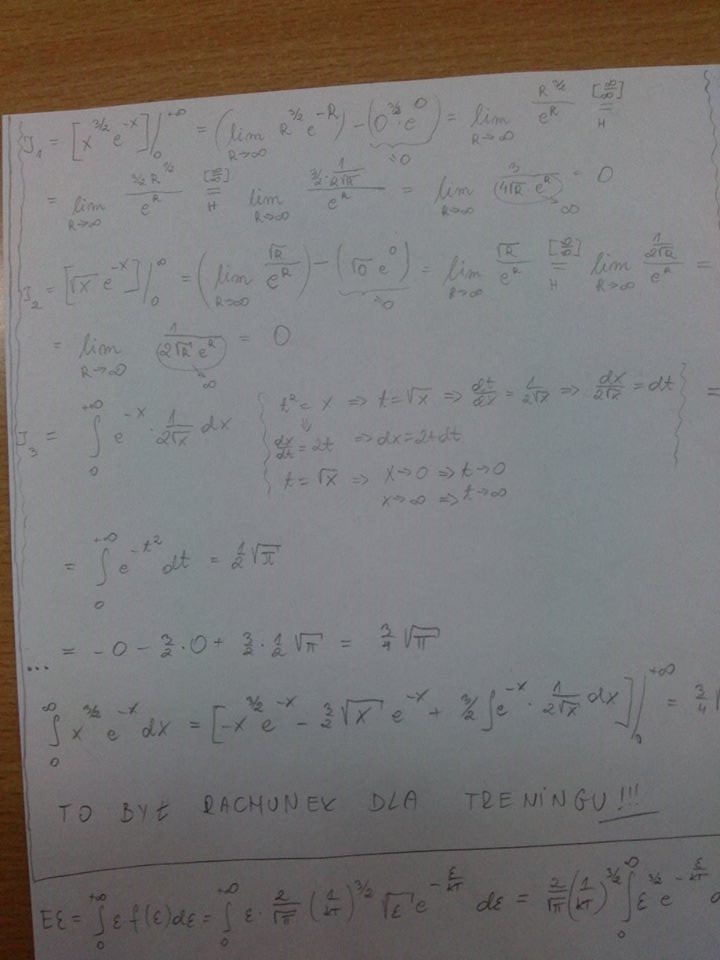 J₁ = [x^{3/2} e^{-x}]|₀^{+∞} = (lim_{R→∞} R^{3/2} e^{-R}) - (0^{3/2}·e^0) = lim_{R→∞} R^{3/2}/e^R [∞/∞] =_H
→0
= lim_{R→∞} (3/2 R^{1/2})/e^R [∞/∞] =_H lim_{R→∞} (3/2 · 1/(2√R))/e^R = lim_{R→∞} 3/(4√R e^R) = 0
→∞
J₂ = [√x e^{-x}]|₀^∞ = (lim_{R→∞} √R/e^R) - (√0 e^0) = lim_{R→∞} √R/e^R [∞/∞] =_H lim_{R→∞} (1/(2√R))/e^R =
→0
= lim_{R→∞} 1/(2√R e^R) = 0
→∞
J₃ = ∫₀^{+∞} e^{-x} · 1/(2√x) dx { t² = x ⇒ t = √x ⇒ dt/dx = 1/(2√x) ⇒ dx/(2√x) = dt } =
⇓
dx/dt = 2t ⇒ dx = 2t dt
t = √x ⇒ x→0 ⇒ t→0
x→∞ ⇒ t→∞
= ∫₀^{+∞} e^{-t²} dt = 1/2 √π
... = -0 - 3/2 · 0 + 3/2 · 1/2 √π = 3/4 √π
∫₀^∞ x^{3/2} e^{-x} dx = [-x^{3/2} e^{-x} - 3/2 √x e^{-x} + 3/2 ∫ e^{-x} · 1/(2√x) dx]|₀^{+∞} = 3/4 √
TO BYŁ RACHUNEK DLA TRENINGU!!!
Eε = ∫₀^{+∞} ε f(ε) dε = ∫₀^{+∞} ε · 2/√π (1/kT)^{3/2} √ε e^{-ε/kT} dε = 2/√π (1/kT)^{3/2} ∫₀^∞ ε^{3/2} e^{-ε/kT} d